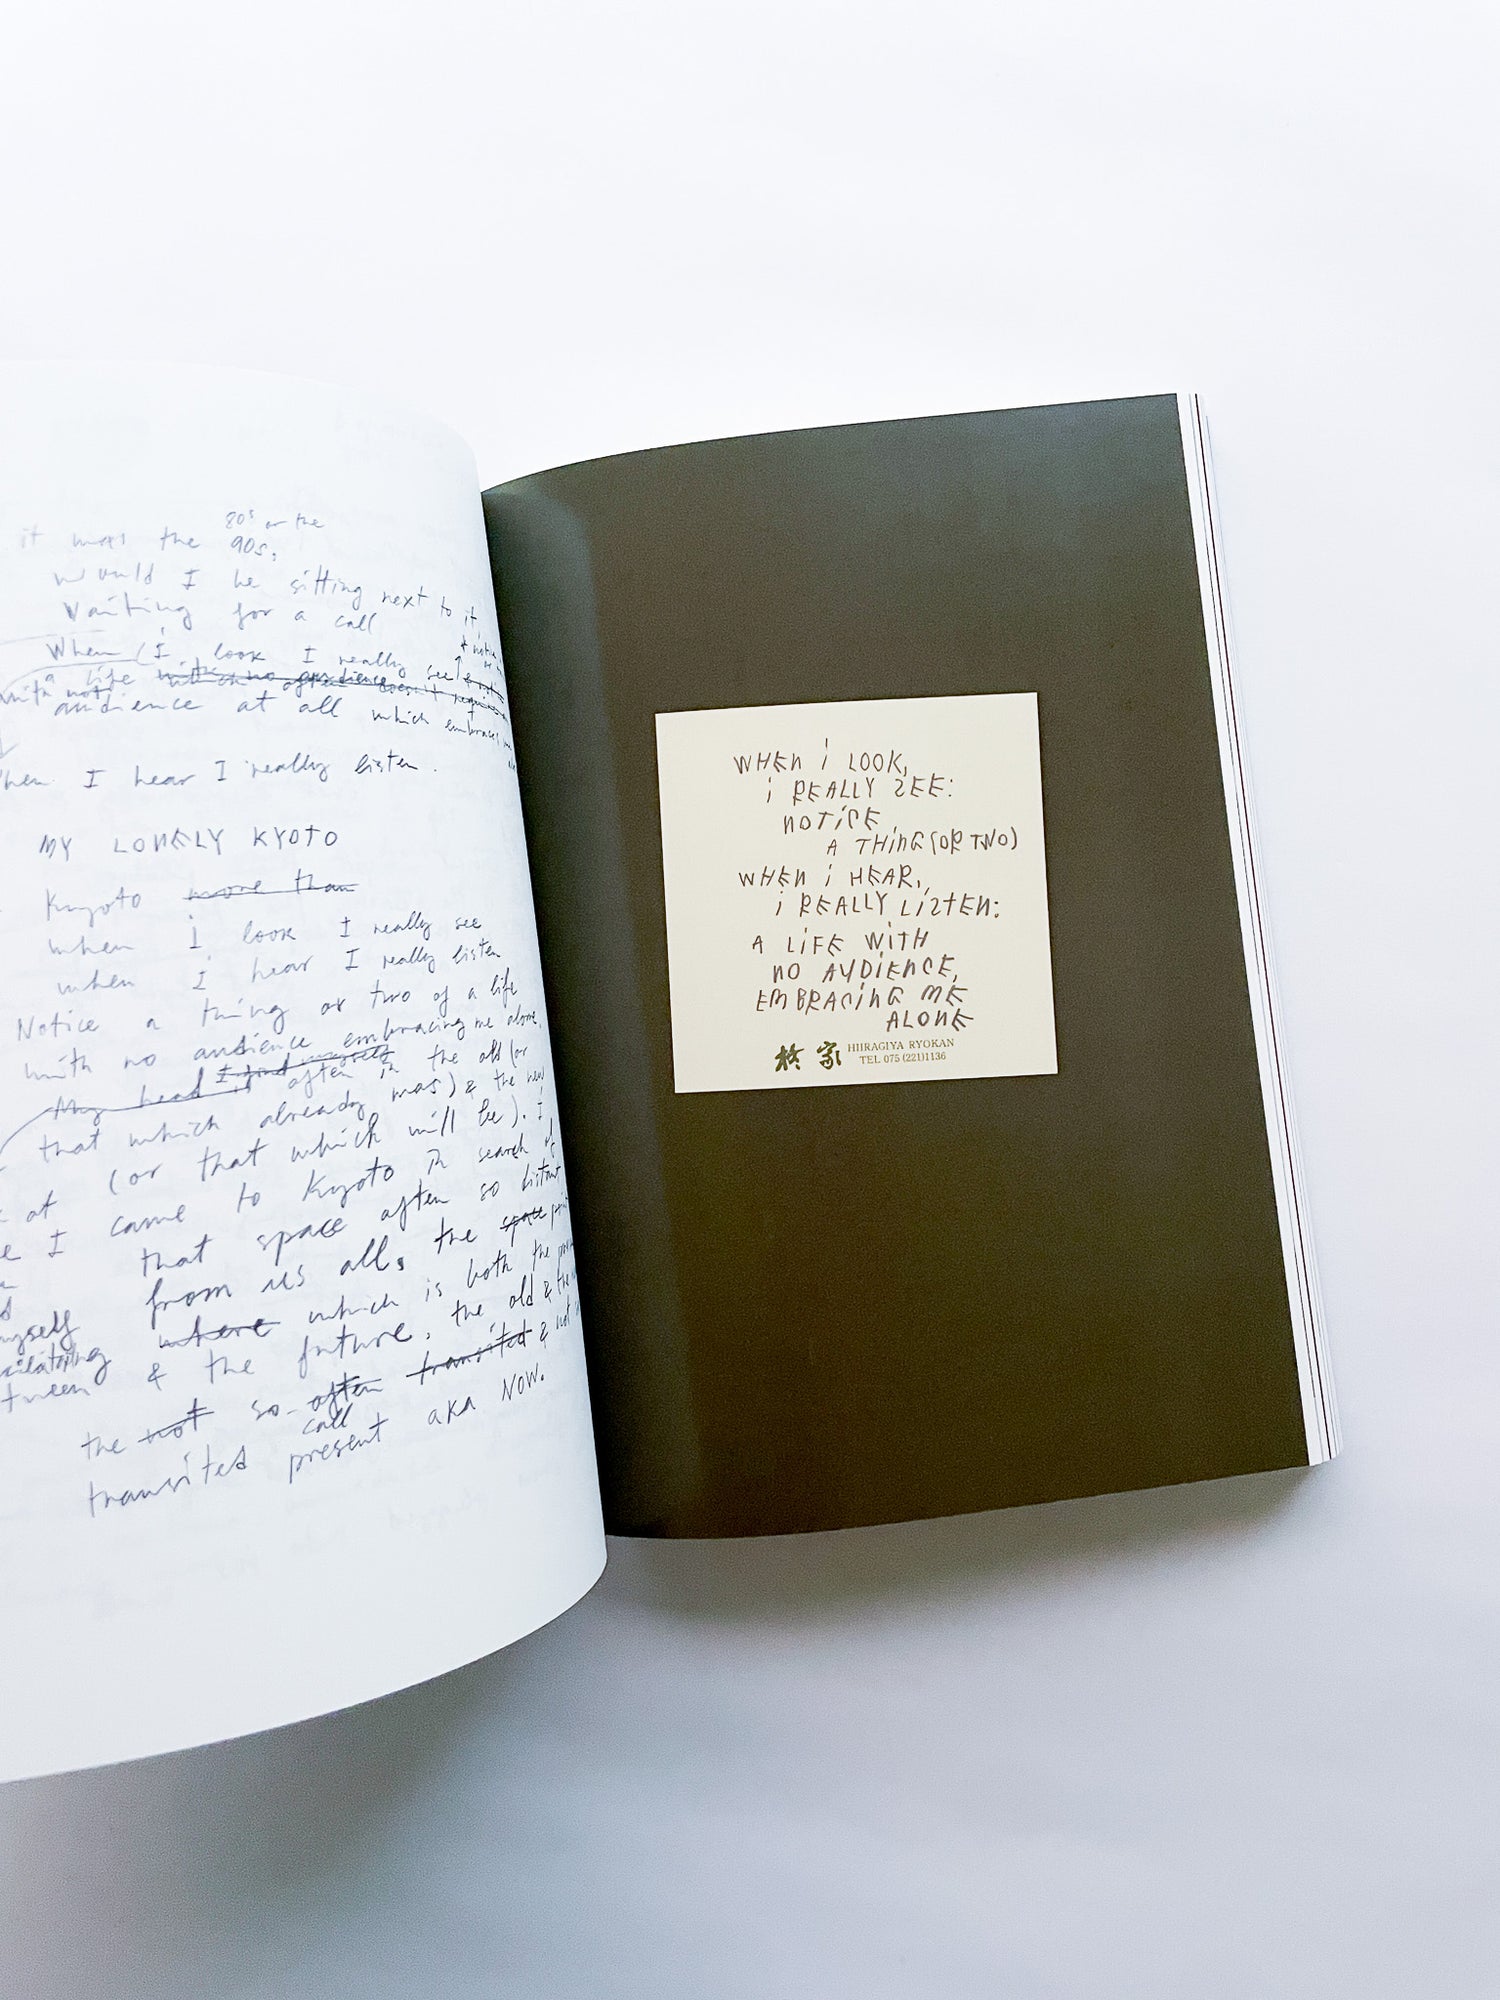 it was the 80s or the
90s,
would I be sitting next to it,
waiting for a call
When (I look I really see
a life with no audience doesn't
with not
audience at all which embraces me
When I hear I really listen.
MY LONELY KYOTO
Kyoto more than
when i look I really see
when I hear I really listen
Notice a thing or two of a life
with no audience embracing me alone.
My head is often in the old (or
that which already was) & the new
(or that which will be). I
at
I came to Kyoto in search of
that space often so distant
from us all, the space
myself where which is both the
& the future, the old & the
the not so often transited & not
call
transited present aka NOW.
WHEN i LOOK,
i REALLY SEE:
NOTiCE
A THiNG (OR TWO)
WHEN i HEAR,
i REALLY LiSTEN:
A LiFE WiTH
NO AUDiENCE,
EMBRACiNG ME
ALONE
柊家 HIIRAGIYA RYOKAN
TEL 075 (221)1136